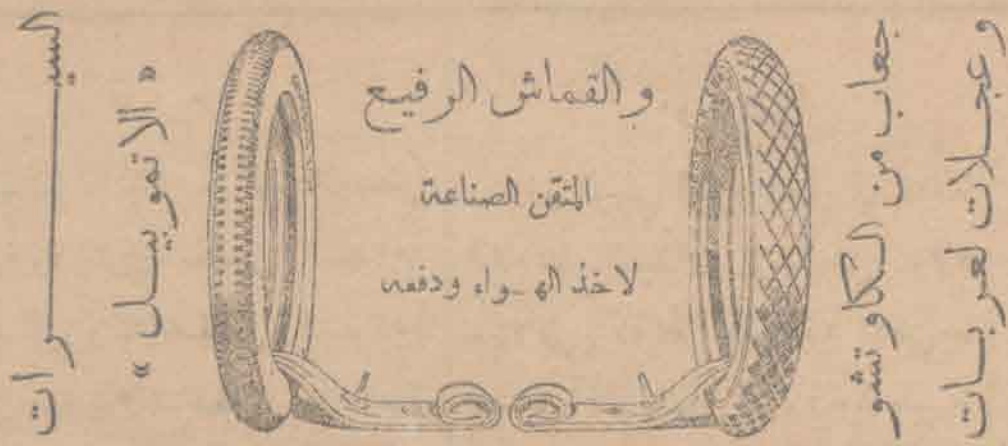 وعجلات لعربات
جعاب من الكاوتشو
والقماش الرفيع
المتقن الصناعة
لاخذ الهـواء ودفعه
« الاتموبيـل »
السيـــــارات